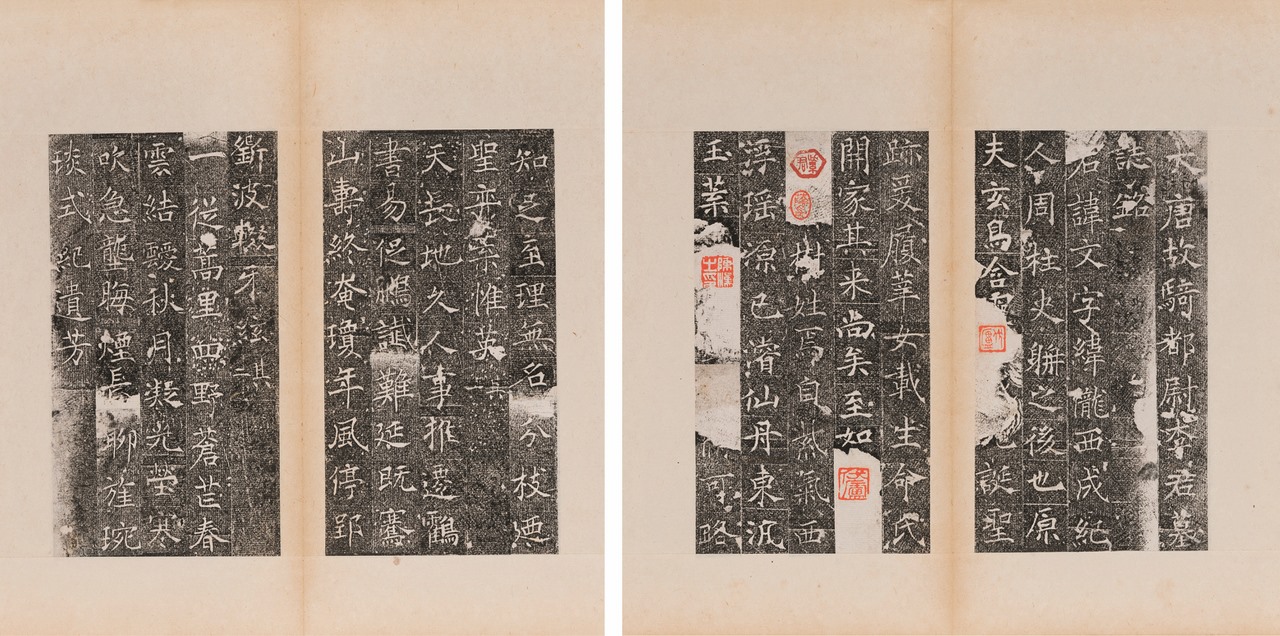 大唐故騎都尉李君墓
誌銘
君諱文字緯隴西成紀
人周柱史聃之後也原
夫玄鳥含
誕聖
跡爰履葦女載生命氏
開家其来尚矣至如
樹姓焉自炁氣西
浮瑶源已濬仙舟東汎
玉葉
可略
知足至理無名分枝迺
聖弈葉惟英其二
天長地久人事推遷鶴
書易促鵩讖難延既騫
山壽終奄瓊年風停郢
斲波輟牙絃其三
一從蒿里無野蒼芒春
雲結靉秋月凝光塋寒
吹急壟晦煙長聊旌琬
琰式紀遺芳